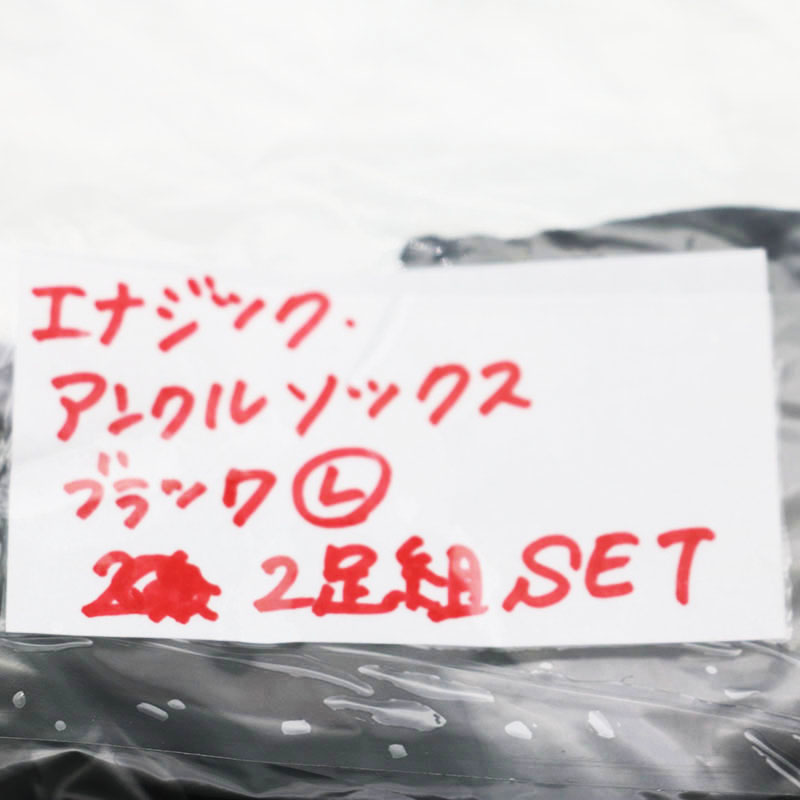 エナジック・
アンクルソックス
ブラック Ⓛ
2足組 SET